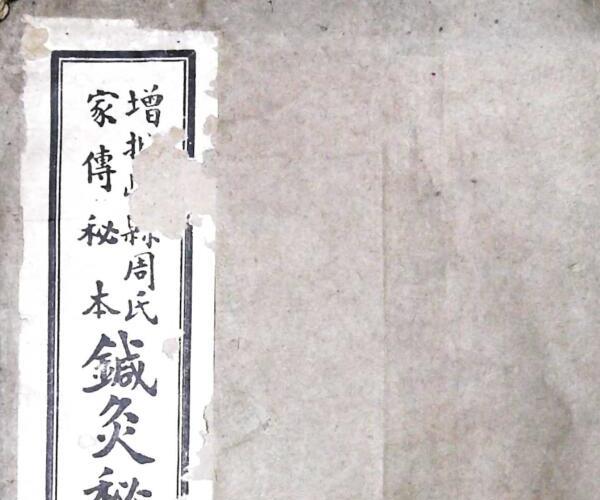 增縣周氏
家傳秘本
鍼灸秘